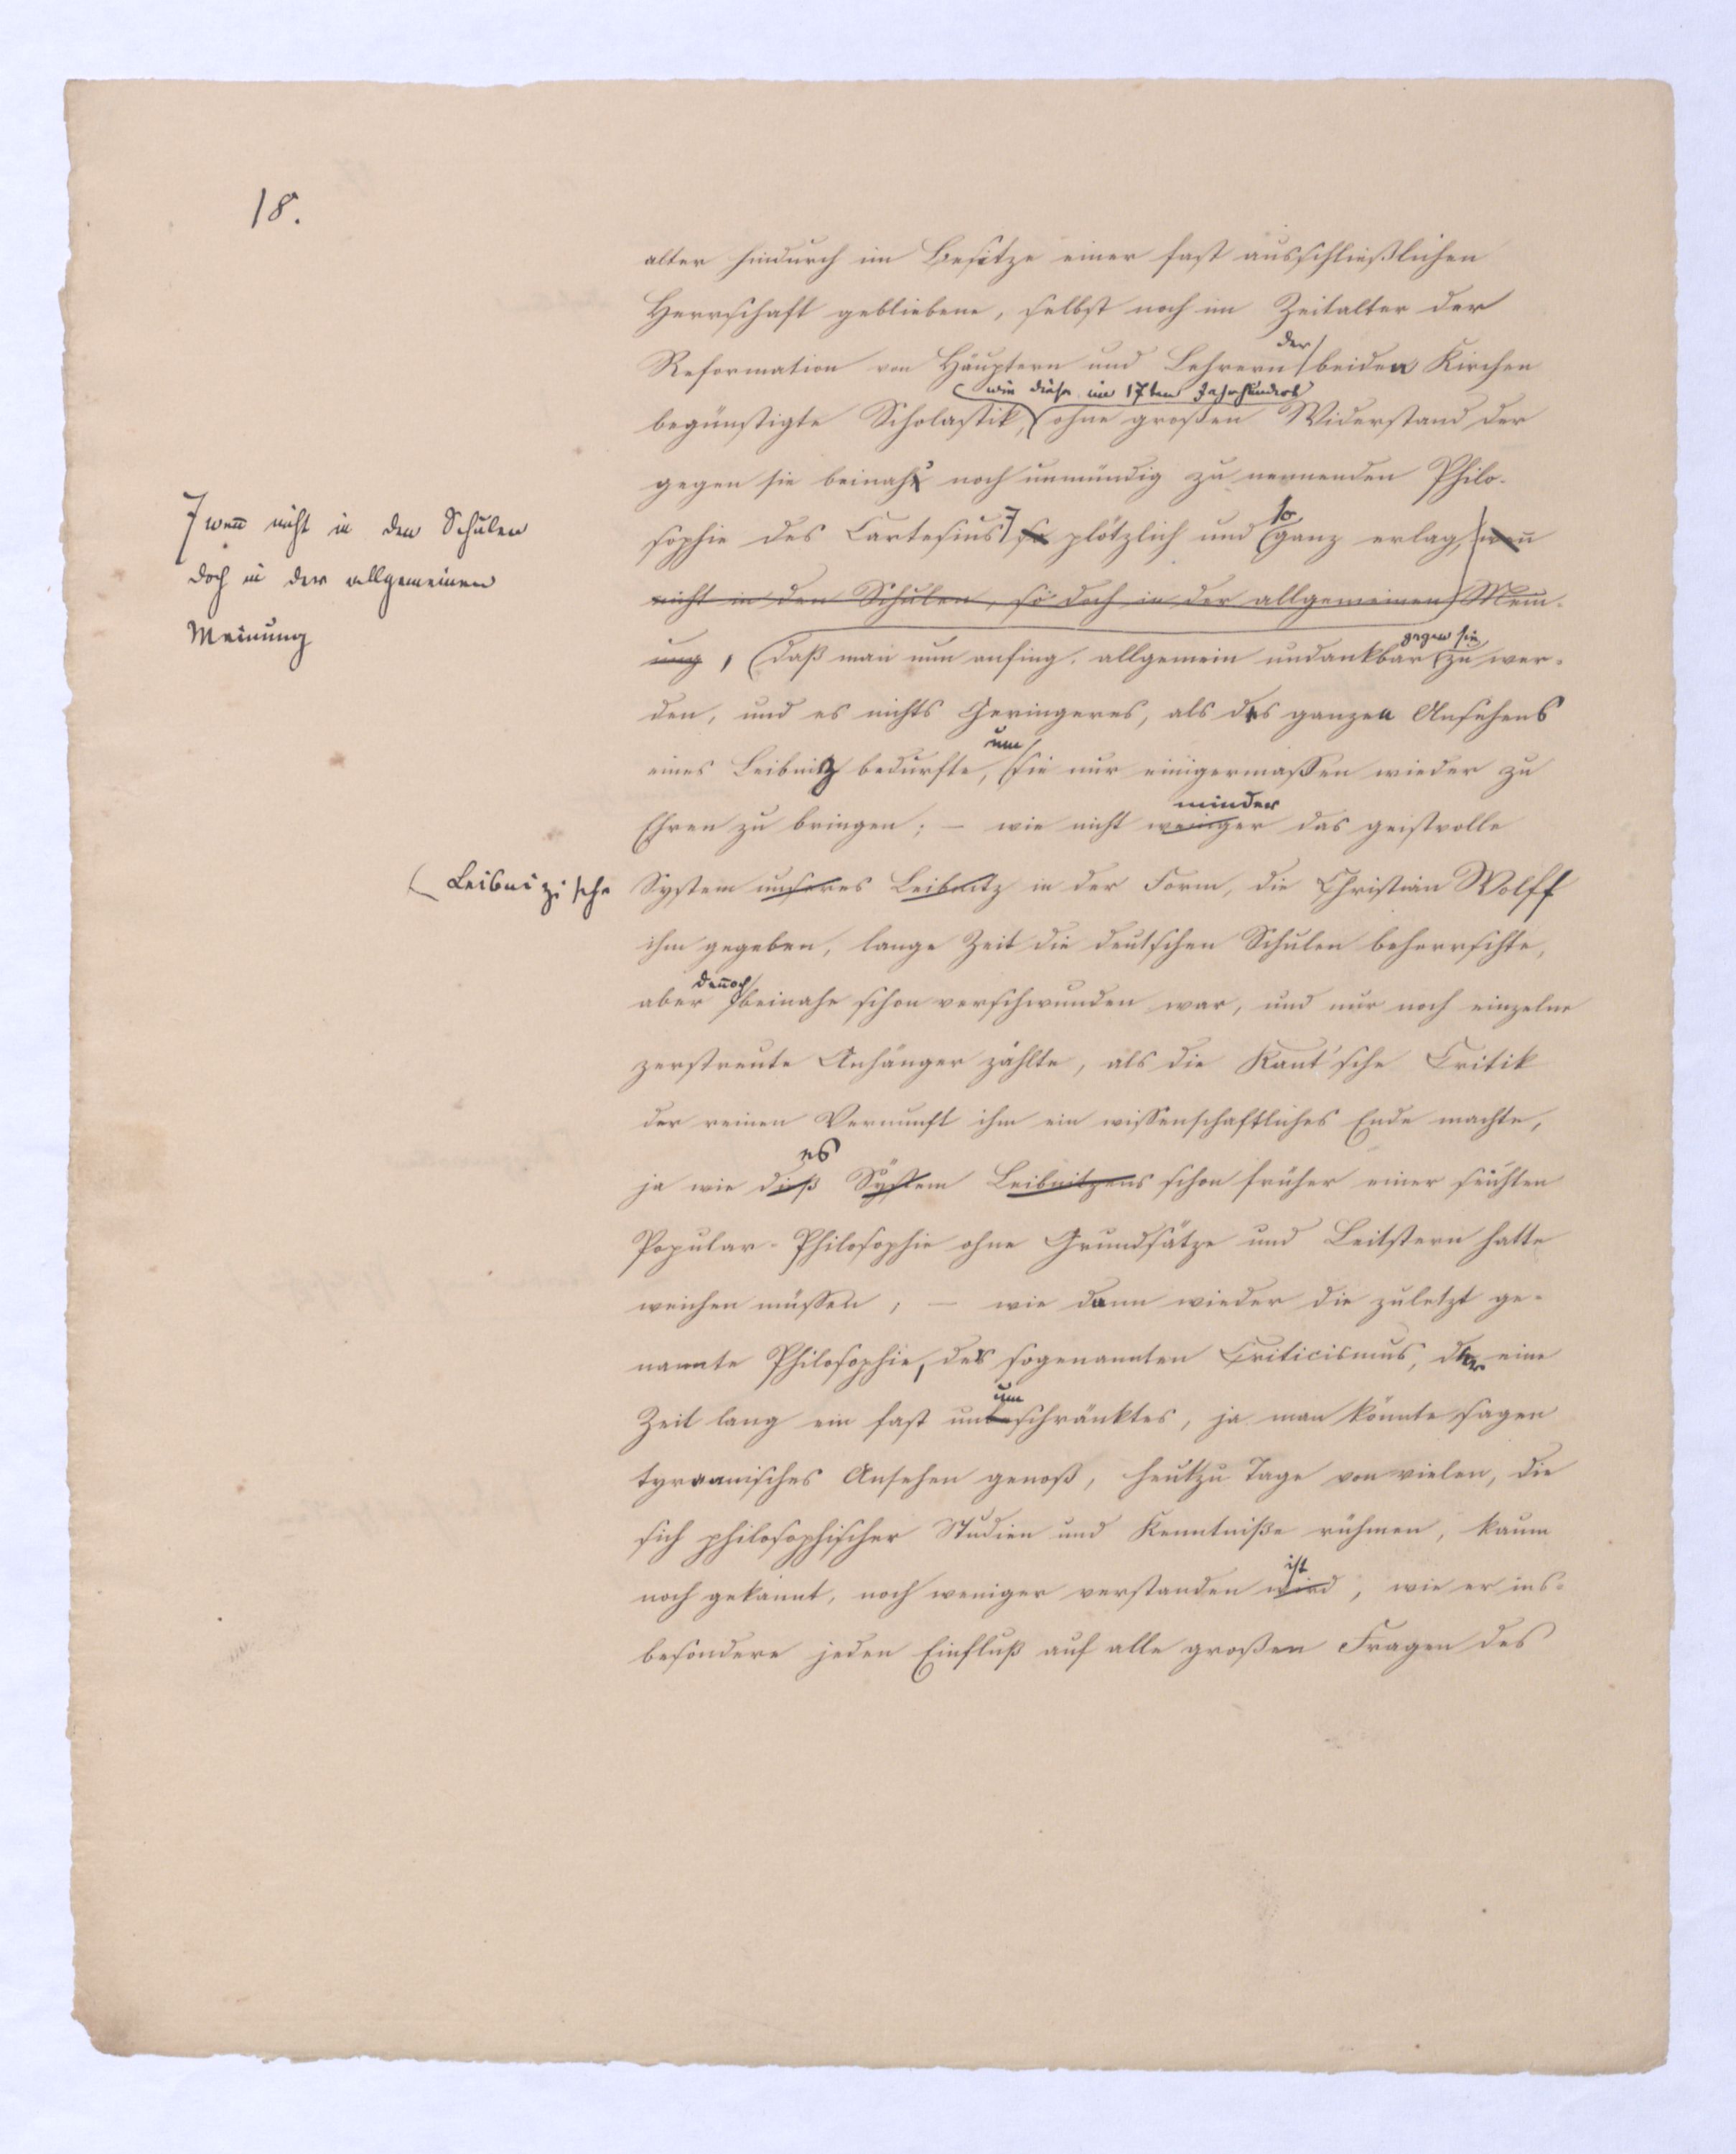 18.
alter hindurch im Besitze einer fast ausschließlichen
Herrschaft gebliebene, selbst noch im Zeitalter der
der
Reformation von Häuptern und Lehrern beiden Kirchen
wie diese im 17ten Jahrhundert
begünstigte Scholastik, ohne großen Widerstand der
gegen sie beinah noch unmündig zu nennenden Philo-
so
sophie des Cartesius so plötzlich und ganz erlag, weñ
nicht in den Schulen, so doch in der allgemeinen Mein-
gegen sie
ung, daß man nun anfing, allgemein undankbar zu wer-
den, und es nichts Geringeres, als des ganzen Ansehens
um
eines Leibniz bedurfte, sie nur einigermaßen wieder zu
minder
Ehren zu bringen; – wie nicht weniger das geistvolle
System unseres Leibnitz in der Form, die Christian Wolff
ihm gegeben, lange Zeit die deutschen Schulen beherrschte,
deñoch
aber beinahe schon verschwunden war, und nur noch einzelne
zerstreute Anhänger zählte, als die Kant'sche Critik
der reinen Vernunft ihm ein wissenschaftliches Ende machte,
es
ja wie dieß System Leibnitzens schon früher einer seichten
Popular-Philosophie ohne Grundsätze und Leitstern hatte
weichen müssen, – wie dann wieder die zuletzt ge-
nannte Philosophie, des sogenannten Criticismus, der eine
um
Zeit lang ein fast unbeschränktes, ja man könnte sagen
tyrannisches Ansehen genoß, heutzu Tage von vielen, die
sich philosophischer Studien und Kenntniße rühmen, kaum
ist
noch gekannt, noch weniger verstanden wird, wie er ins-
besondere jeden Einfluß auf alle großen Fragen des
weñ nicht in den Schulen
doch in der allgemeinen
Meinung
Leibnizische